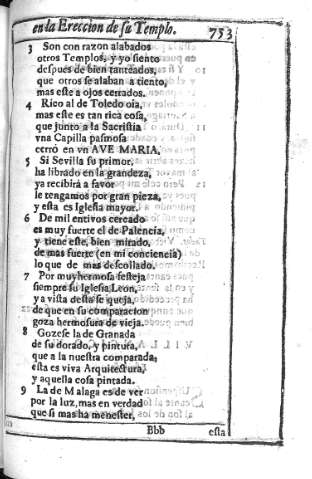 en la Ereccion de su Templo. 753
3 Son con razon alabados
otros Templos, y yo siento
despues de bien tanteados,
que otros se alaban a tiento,
mas este a ojos cerrados.
4 Rico al de Toledo oia,
mas este es tan rica cosa,
que junto a la Sacristia
vna Capilla pasmosa
cerró en vn AVE MARIA.
5 Si Sevilla su primor,
ha librado en la grandeza,
ya recibirá a favor
le tengamos por gran pieza,
y esta es Iglesia mayor.
6 De mil entivos cercado
es muy fuerte el de Palencia,
y tiene este, bien mirado,
de mas fuerte (en mi conciencia)
lo que de mas descollado.
7 Por muy hermosa festeja
siempre su Iglesia Leon,
y a vista desta se queja,
de que en su comparacion
goza hermosura de vieja.
8 Gozese la de Granada
de su dorado, y pintura,
que a la nuestra comparada,
esta es viva Arquitectura,
y aquella cosa pintada.
9 La de Malaga es de ver
por la luz, mas en verdad
que si mas ha menester,
Bbb esta